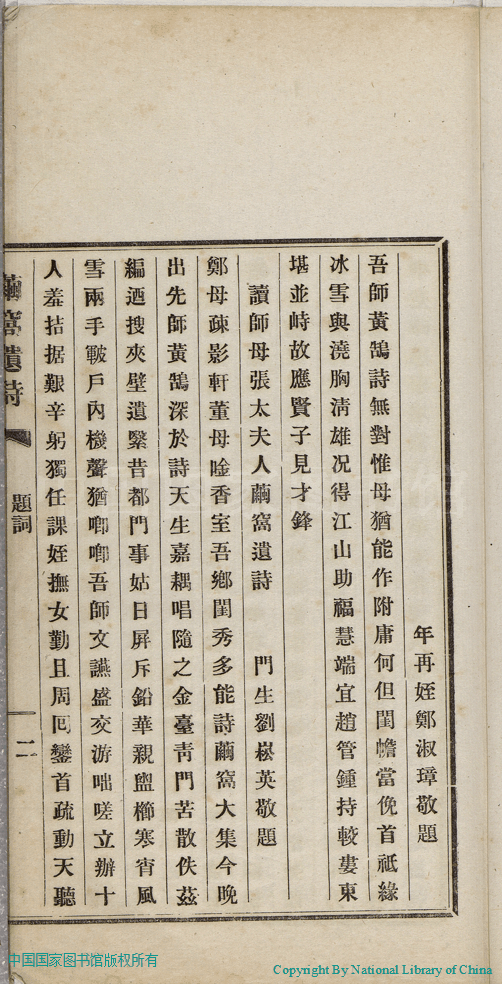 年再姪鄭淑璋敬題
吾師黃鵠詩無對惟母猶能作附庸何但閨幨當俛首祇緣
冰雪與澆胸淸雄况得江山助福慧端宜趙管鍾持較婁東
堪並峙故應賢子見才鋒
讀師母張太夫人繭窩遺詩 門生劉崧英敬題
鄭母疎影軒董母唫香室吾鄕閨秀多能詩繭窩大集今晚
出先師黃鵠深於詩天生嘉耦唱隨之金臺靑門苦散佚茲
編迺搜夾壁遺緊昔都門事姑日屏斥鉛華親盥櫛寒宵風
雪兩手皸戶內機聲猶唧唧吾師文讌盛交游咄嗟立辦十
人羞拮据艱辛躬獨任課姪撫女勤且周囘鑾首疏動天聽
繭窩遺詩
題詞
二
中国国家图书馆版权所有
Copyright By National Library of China